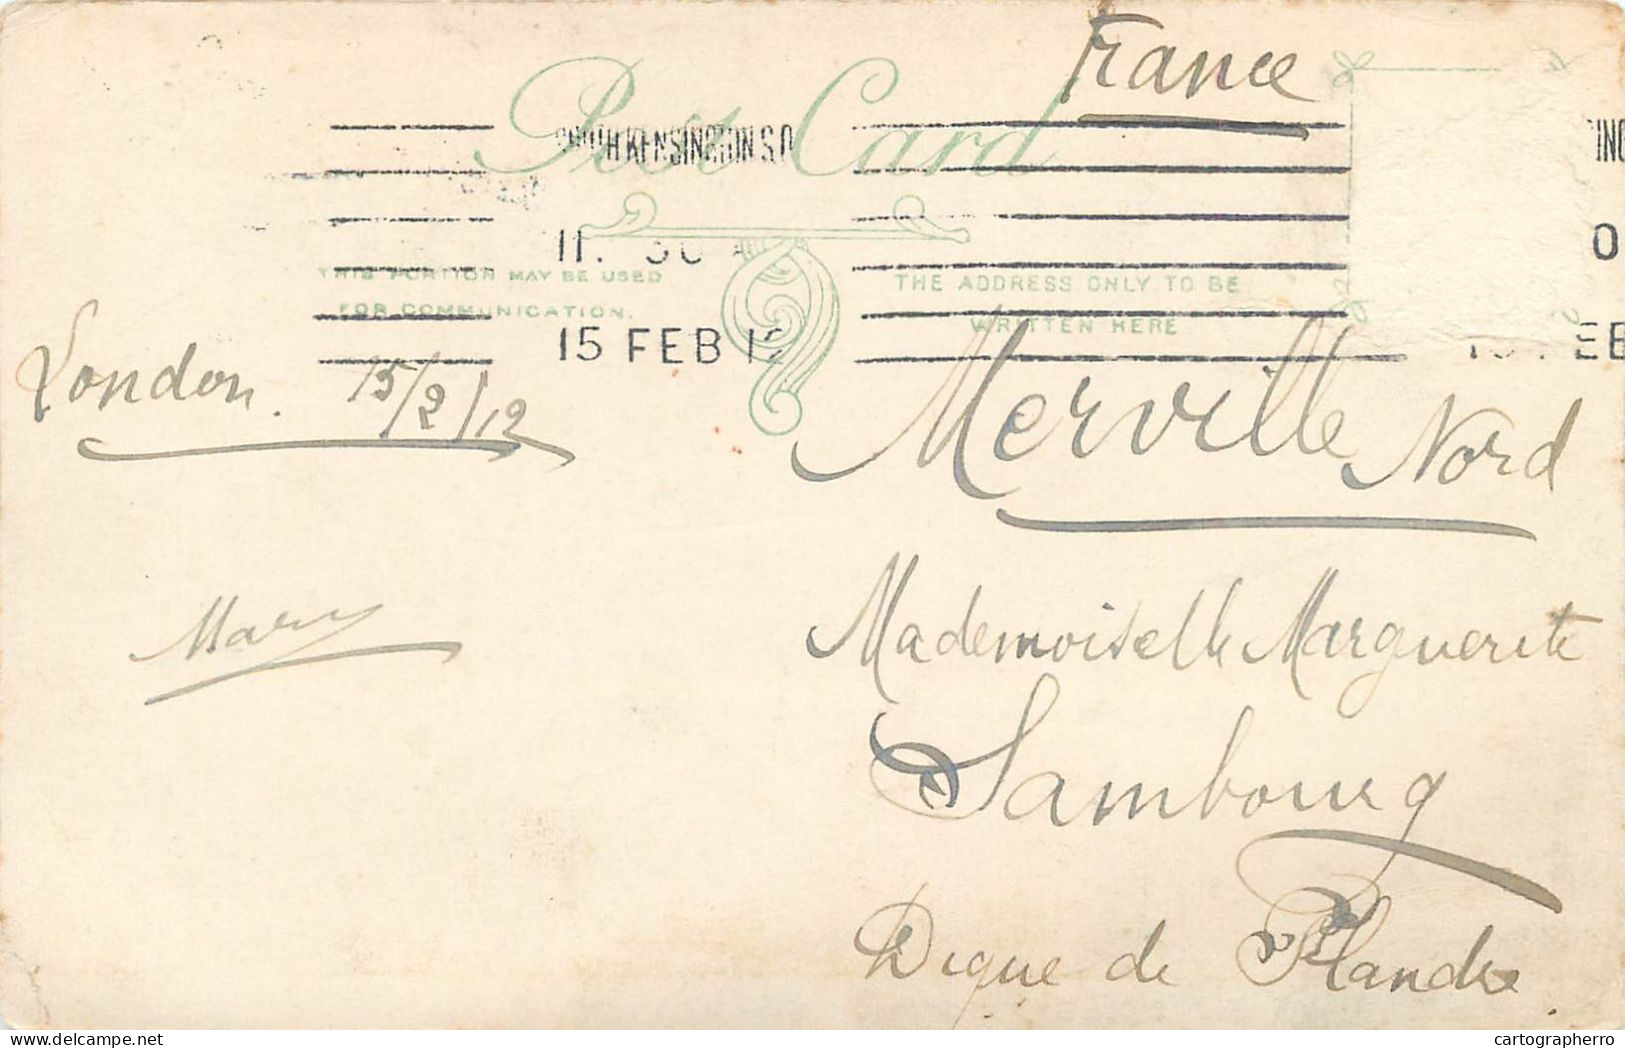 France
Post Card
SOUTH KENSINGTON S.O
11. 30 A
15 FEB 12
THIS PORTION MAY BE USED
FOR COMMUNICATION.
THE ADDRESS ONLY TO BE
WRITTEN HERE
London. 15/2/12
Mary
Merville Nord
Mademoiselle Marguerite
Sambourg
Digue de Flandre
cartographerro